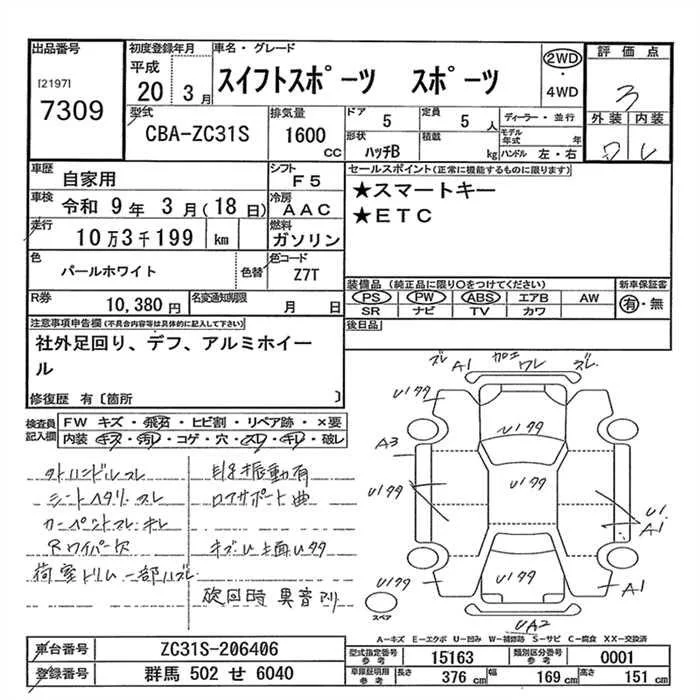 出品番号
[2197]
7309
初度登録年月
平成
20 3月
車名・グレード
スイフトスポーツ スポーツ
2WD
・
4WD
評価点
3
外装 内装
型式
CBA-ZC31S
排気量
1600
CC
ドア 5
定員 5 人
形状 ハッチB
積載 kg
ディーラー・並行
モデル年式 年
ハンドル 左・右
車歴 自家用
シフト F5
車検 令和 9年 3月(18日)
冷房 AAC
走行 10万3千199 km
燃料 ガソリン
色 パールホワイト
色替
色コード Z7T
R券 10,380円
名変通知期限 月 日
セールスポイント(正常に機能するものに限ります)
★スマートキー
★ETC
装備品(純正品に限り○をつけてください)
PS PW ABS エアB AW
SR ナビ TV カワ
新車保証書
有・無
後日品
注意事項申告欄(不具合内容等は具体的に記入して下さい)
社外足回り、デフ、アルミホイー
ル
修復歴 有〔箇所 〕
検査員記入欄
FW キズ・飛石・ヒビ割・リペア跡・×要
内装・キズ・汚レ・コゲ・穴・スレ・キレ・破レ
シートヘタリ スレ
カーペットスレ キレ
Rワイパー欠
荷室トリム一部ハズレ
振動有
ロアサポート曲
ズレ A1 加工 ワレ ズレ
U177
U177
A3
U177
U177
U1
A1
U177
U177
A1
UA2
スペア
A-キズ E-エクボ U-凹み W-補修跡 S-サビ C-腐食 XX-交換済
車台番号 ZC31S-206406
登録番号 群馬 502 せ 6040
型式指定番号 参考 15163
類別区分番号 参考 0001
車庫証明用 参考 長さ 376 cm 幅 169 cm 高さ 151 cm